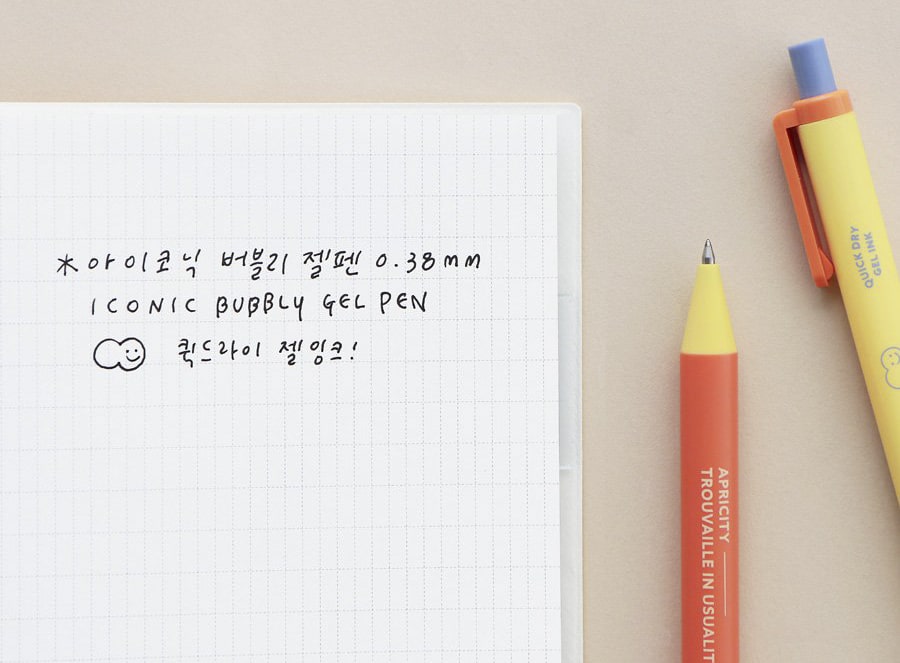 *아이코닉 버블리 젤펜 0.38mm
ICONIC BUBBLY GEL PEN
퀵드라이 젤잉크!
APRICITY
TROUVAILLE IN USUALIT
QUICK DRY
GEL INK